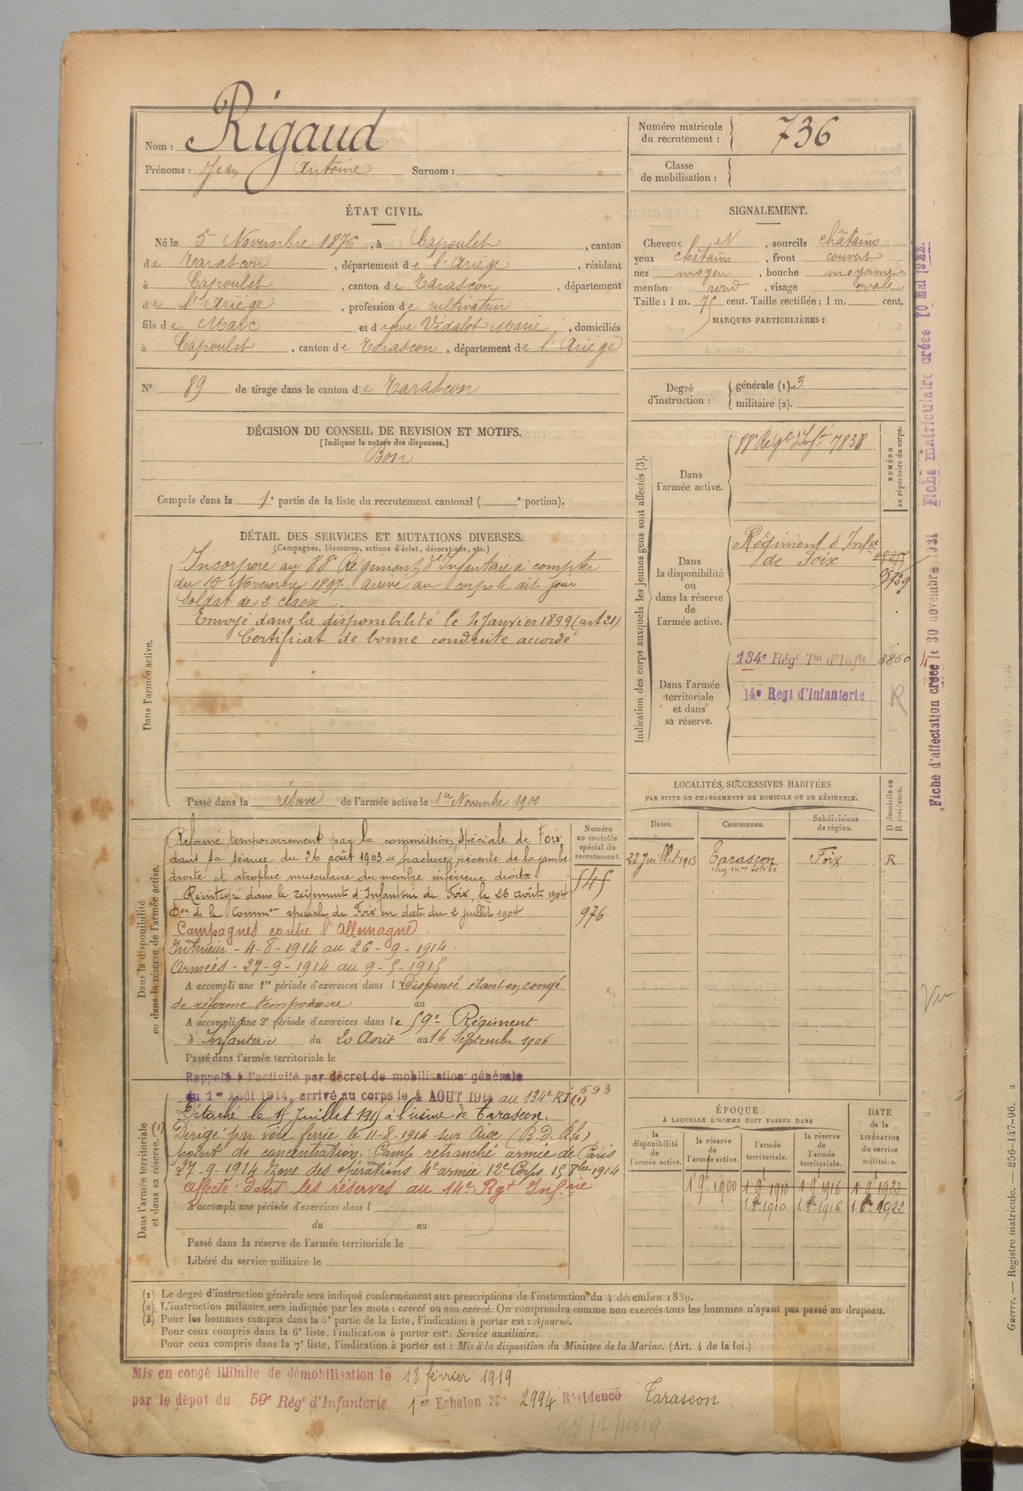 Nom : Rigaud
Prénoms : Jean Antoine Surnom :
Numéro matricule du recrutement : 736
Classe de mobilisation :
ÉTAT CIVIL.
Né le 5 Novembre 1876, à Capoulet, canton
de Tarascon, département de l'Ariège, résidant
à Capoulet, canton de Tarascon, département
de l'Ariège, profession de cultivateur
fils de Marc et de feue Vidalot Marie, domiciliés
à Capoulet, canton de Tarascon, département de l'Ariège
N° 89 de tirage dans le canton de Tarascon
SIGNALEMENT.
Cheveux N, sourcils châtains
yeux châtains, front couvert
nez moyen, bouche moyenne
menton rond, visage ovale
Taille : 1 m. 75 cent. Taille rectifiée : 1 m. cent.
MARQUES PARTICULIÈRES :
Degré d'instruction : générale (1). 3
militaire (2).
DÉCISION DU CONSEIL DE REVISION ET MOTIFS.
(Indiquer la nature des dispenses.)
Bon
Compris dans la 1e partie de la liste du recrutement cantonal ( e portion).
DÉTAIL DES SERVICES ET MUTATIONS DIVERSES.
(Campagnes, blessures, actions d'éclat, décorations, etc.)
Dans l'armée active.
Incorporé au 88 Régiment d'Infanterie à compter
du 10 Novembre 1897 arrivé au Corps le dit jour
Soldat de 2e classe
Envoyé dans la disponibilité le 4 Janvier 1899 (art 21)
Certificat de bonne conduite accordé
Passé dans la réserve de l'armée active le 1er Novembre 1900
Indication des corps auxquels les jeunes gens sont affectés (3).
NUMÉRO au répertoire du corps.
Dans l'armée active.
88 Régt d'Infie 7838
Dans la disponibilité ou dans la réserve de l'armée active.
Régiment d'Infie
de Foix
9729
Dans l'armée territoriale et dans sa réserve.
134e Régt Tal d'Infie
14e Regt d'Infanterie
R
LOCALITÉS SUCCESSIVES HABITÉES
PAR SUITE DE CHANGEMENTS DE DOMICILE OU DE RÉSIDENCE.
Dates. Communes. Subdivisions de région. D domicile ou R résidence.
22 Juillet 1913 Tarascon Foix R
Dans la disponibilité ou dans la réserve de l'armée active.
Numéro au contrôle spécial du recrutement.
Réformé temporairement par la commission spéciale de Foix
dans sa séance du 26 août 1903 fracture récente de la jambe
droite et atrophie musculaire du membre inférieur droit
Réintégré dans le régiment d'Infanterie de Foix, le 26 août 1904
Don de la Common spéciale de Foix en date du 2 juillet 1904
545
976
Campagnes contre l'Allemagne
Intérieur - 4-8-1914 au 26-9-1914
Armées - 27-9-1914 au 9-5-1915
A accompli une 1re période d'exercices dans l Dispensé étant en congé
de réforme temporaire au
A accompli une 2e période d'exercices dans le 59e Régiment
d'Infanterie du 20 Août au 16 Septembre 1906
Passé dans l'armée territoriale le
Rappelé à l'activité par décret de mobilisation générale
du 1er août 1914, arrivé au corps le 4 AOUT 1914 au 134e RI (1) 693
Dans l'armée territoriale et dans sa réserve. (1)
Détaché le 15 Juillet 1915 à l'usine de Tarascon.
Dirigé par voie ferrée le 11-8-1914 sur Aix
point de concentration. Camp retranché armée de Paris
27-9-1914 Zone des opérations 4e armée 12e Corps
Affecté dans les réserves au 14e Rgt Infie
A accompli une période d'exercices dans l
du au
Passé dans la réserve de l'armée territoriale le
Libéré du service militaire le
ÉPOQUE
À LAQUELLE L'HOMME DOIT PASSER DANS
la disponibilité de l'armée active. la réserve de l'armée active. l'armée territoriale. la réserve de l'armée territoriale.
DATE de la LIBÉRATION du service militaire.
1 9 1900 1 9 1910 1 9 1916 1 9 1922
1 8bre 1910 1 8bre 1916 1 8bre 1922
(1) Le degré d'instruction générale sera indiqué conformément aux prescriptions de l'instruction du 4 décembre 1889.
(2) L'instruction militaire sera indiquée par les mots : exercé ou non exercé. On comprendra comme non exercés tous les hommes n'ayant pas passé au drapeau.
(3) Pour les hommes compris dans la 5e partie de la liste, l'indication à porter est : Ajourné.
Pour ceux compris dans la 6e liste, l'indication à porter est : Service auxiliaire.
Pour ceux compris dans la 7e liste, l'indication à porter est : Mis à la disposition du Ministre de la Marine. (Art. 4 de la loi.)
Mis en congé illimité de démobilisation le 18 février 1919
par le dépôt du 59e Régt d'Infanterie 1er Echelon N° 2994 Résidence Tarascon
Fiche d'affectation créée le 30 novembre 1921 Fiche matriculaire créée 10 Mai 1922
Vu
Guerre. — Registre matricule. — 256-147-96.